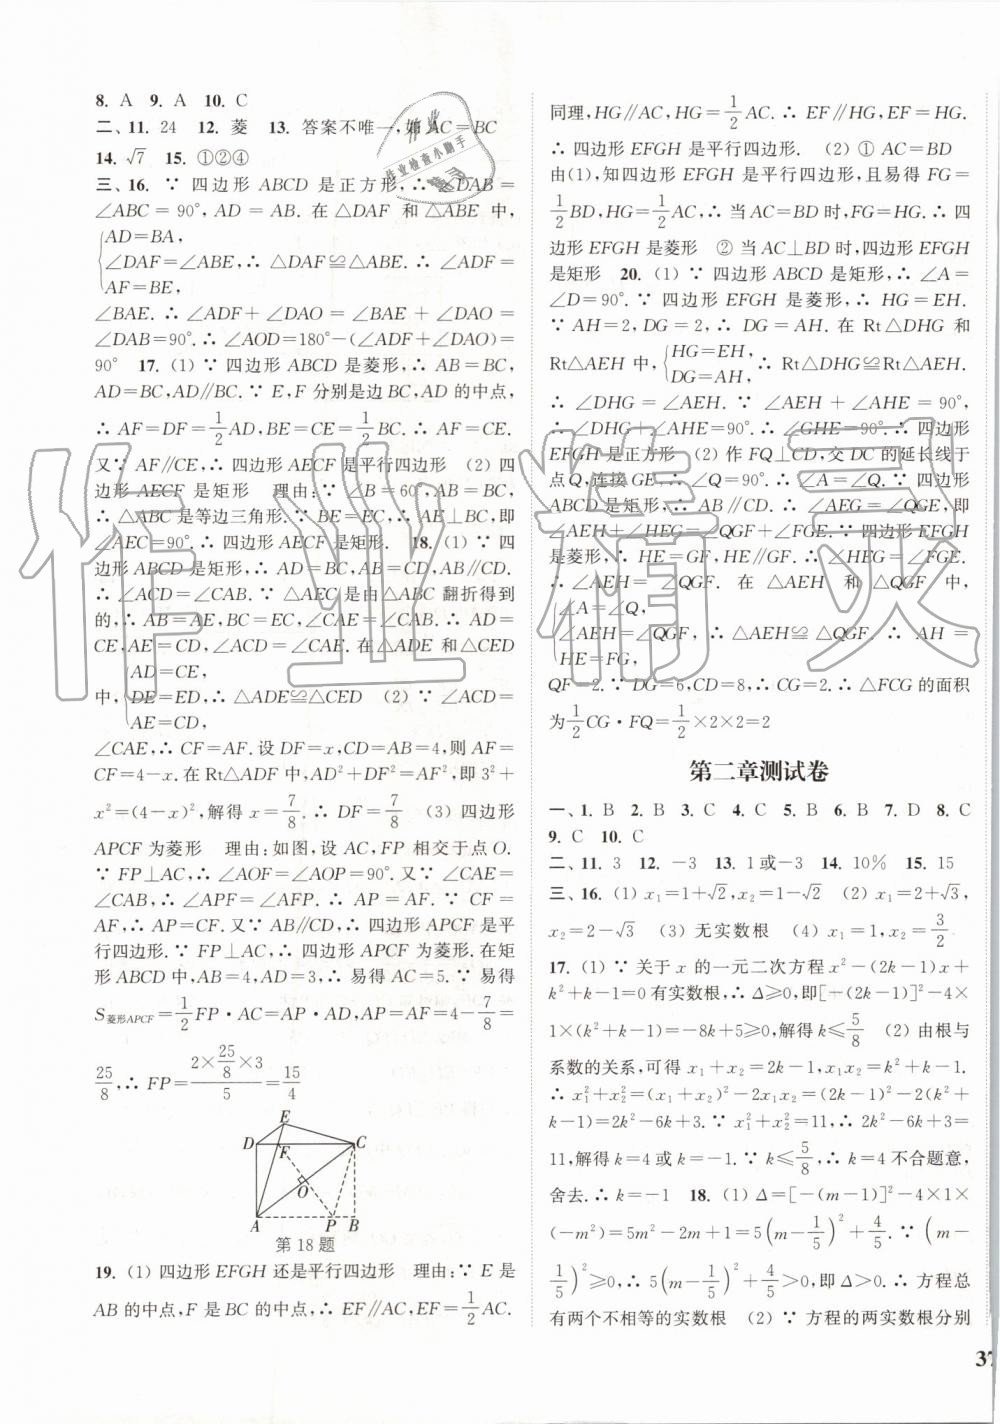 8. A 9. A 10. C
二、11. 24 12. 菱 13. 答案不唯一,如 AC=BC
14. √7 15. ①②④
三、16. ∵ 四边形 ABCD 是正方形,∴ ∠DAB=
∠ABC=90°,AD=AB. 在△DAF 和△ABE 中,
{AD=BA,
∠DAF=∠ABE,∴ △DAF≌△ABE. ∴ ∠ADF=
AF=BE,
∠BAE. ∴ ∠ADF+∠DAO=∠BAE+∠DAO=
∠DAB=90°. ∴ ∠AOD=180°-(∠ADF+∠DAO)=
90° 17. (1) ∵ 四边形 ABCD 是菱形,∴ AB=BC,
AD=BC,AD∥BC. ∵ E,F 分别是边 BC,AD 的中点,
∴ AF=DF=1/2AD,BE=CE=1/2BC. ∴ AF=CE.
又∵ AF∥CE,∴ 四边形 AECF 是平行四边形 (2) 四
边形 AECF 是矩形 理由:∵ ∠B=60°,AB=BC,
∴ △ABC 是等边三角形. ∵ BE=EC,∴ AE⊥BC,即
∠AEC=90°. ∴ 四边形 AECF 是矩形. 18. (1) ∵ 四
边形 ABCD 是矩形,∴ AD=BC,AB=CD,AB∥CD.
∴ ∠ACD=∠CAB. ∵ △AEC 是由△ABC 翻折得到
的,∴ AB=AE,BC=EC,∠CAE=∠CAB. ∴ AD=
CE,AE=CD,∠ACD=∠CAE. 在△ADE 和△CED
中,{AD=CE,
DE=ED,∴ △ADE≌△CED (2) ∵ ∠ACD=
AE=CD,
∠CAE,∴ CF=AF. 设 DF=x,CD=AB=4,则 AF=
CF=4-x. 在 Rt△ADF 中,AD²+DF²=AF²,即 3²+
x²=(4-x)²,解得 x=7/8. ∴ DF=7/8 (3) 四边形
APCF 为菱形 理由:如图,设 AC,FP 相交于点 O.
∵ FP⊥AC,∴ ∠AOF=∠AOP=90°. 又∵ ∠CAE=
∠CAB,∴ ∠APF=∠AFP. ∴ AP=AF. ∵ CF=
AF,∴ AP=CF. 又∵ AB∥CD,∴ 四边形 APCF 是平
行四边形. ∵ FP⊥AC,∴ 四边形 APCF 为菱形. 在矩
形 ABCD 中,AB=4,AD=3,∴ 易得 AC=5. ∵ 易得
S菱形APCF=1/2FP·AC=AP·AD,AP=AF=4-7/8=
25/8,∴ FP=(2×25/8×3)/5=15/4
E
D F C
O
A P B
第 18 题
19. (1) 四边形 EFGH 还是平行四边形 理由:∵ E 是
AB 的中点,F 是 BC 的中点,∴ EF∥AC,EF=1/2AC.
同理,HG∥AC,HG=1/2AC. ∴ EF∥HG,EF=HG.
∴ 四边形 EFGH 是平行四边形. (2) ① AC=BD
由(1),知四边形 EFGH 是平行四边形,且易得 FG=
1/2BD,HG=1/2AC,∴ 当 AC=BD 时,FG=HG. ∴ 四
边形 EFGH 是菱形 ② 当 AC⊥BD 时,四边形 EFGH
是矩形 20. (1) ∵ 四边形 ABCD 是矩形,∴ ∠A=
∠D=90°. ∵ 四边形 EFGH 是菱形,∴ HG=EH.
∵ AH=2,DG=2,∴ DG=AH. 在 Rt△DHG 和
Rt△AEH 中,{HG=EH,
DG=AH,∴ Rt△DHG≌Rt△AEH.
∴ ∠DHG=∠AEH. ∵ ∠AEH+∠AHE=90°,
∴ ∠DHG+∠AHE=90°. ∴ ∠GHE=90°. ∴ 四边形
EFGH 是正方形 (2) 作 FQ⊥CD,交 DC 的延长线于
点 Q,连接 GE,∴ ∠Q=90°. ∴ ∠A=∠Q. ∵ 四边形
ABCD 是矩形,∴ AB∥CD. ∴ ∠AEG=∠QGE,即
∠AEH+∠HEG=∠QGF+∠FGE. ∵ 四边形 EFGH
是菱形,∴ HE=GF,HE∥GF. ∴ ∠HEG=∠FGE.
∴ ∠AEH=∠QGF. 在△AEH 和△QGF 中,
{∠A=∠Q,
∠AEH=∠QGF,∴ △AEH≌△QGF. ∴ AH=
HE=FG,
QF=2. ∵ DG=6,CD=8,∴ CG=2. ∴ △FCG 的面积
为1/2CG·FQ=1/2×2×2=2
第二章测试卷
一、1. B 2. B 3. C 4. C 5. B 6. B 7. D 8. C
9. C 10. C
二、11. 3 12. -3 13. 1或-3 14. 10% 15. 15
三、16. (1) x₁=1+√2,x₂=1-√2 (2) x₁=2+√3,
x₂=2-√3 (3) 无实数根 (4) x₁=1,x₂=3/2
17. (1) ∵ 关于 x 的一元二次方程 x²-(2k-1)x+
k²+k-1=0有实数根,∴ Δ≥0,即[-(2k-1)]²-4×
1×(k²+k-1)=-8k+5≥0,解得 k≤5/8 (2) 由根与
系数的关系,可得 x₁+x₂=2k-1,x₁x₂=k²+k-1.
∴ x₁²+x₂²=(x₁+x₂)²-2x₁x₂=(2k-1)²-2(k²+
k-1)=2k²-6k+3. ∵ x₁²+x₂²=11,∴ 2k²-6k+3=
11,解得 k=4 或 k=-1. ∵ k≤5/8,∴ k=4 不合题意,
舍去. ∴ k=-1 18. (1) Δ=[-(m-1)]²-4×1×
(-m²)=5m²-2m+1=5(m-1/5)²+4/5. ∵ (m-
1/5)²≥0,∴ 5(m-1/5)²+4/5>0,即 Δ>0. ∴ 方程总
有两个不相等的实数根 (2) ∵ 方程的两实数根分别
37
作业精灵
作业
作业检查小助手